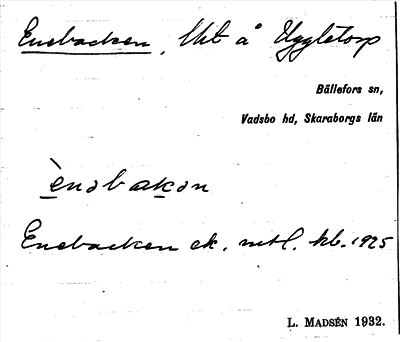 Enebacken, Uht å Uggletorp
Bällefors sn,
Vadsbo hd, Skaraborgs län
è̱nəbak̲ən
Enebacken ek. mtl. kb. 1925
L. MADSÉN 1932.